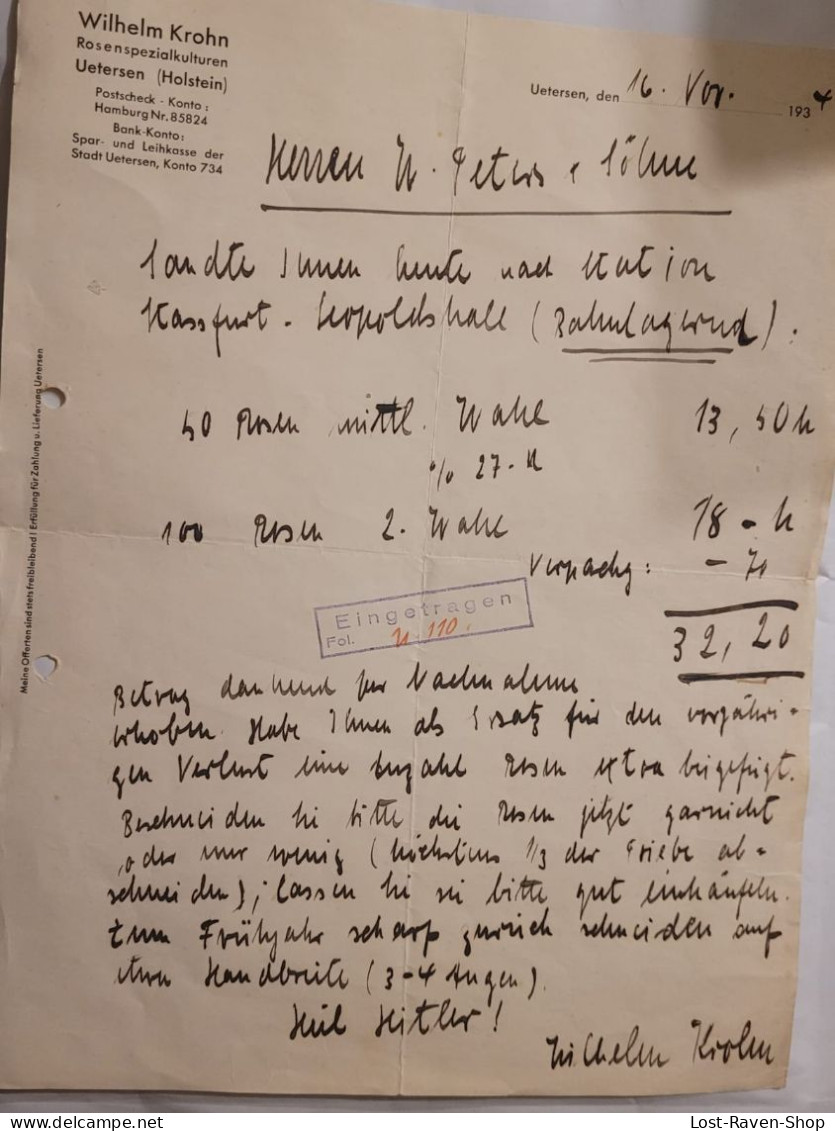 Wilhelm Krohn
Rosenspezialkulturen
Uetersen (Holstein)
Postscheck - Konto:
Hamburg Nr. 85824
Bank-Konto:
Spar- und Leihkasse der
Stadt Uetersen, Konto 734
Uetersen, den 16. Nov. 1934
Herren W. Peters & Söhne
Sandte Ihnen heute nach Station
Stassfurt - Leopoldshall (Bahnlagernd).
50 Rosen mittl. Wahl 13,50 M
% 27.- M
100 Rosen 2. Wahl 18 - M
Verpackg: - 70
32,20
Eingetragen
Fol. 110.
Betrag dankend per Nachnahme
erhoben. Habe Ihnen als Ersatz für den vorjähri-
gen Verlust eine Anzahl Rosen extra beigefügt.
Beschneiden Sie bitte die Rosen jetzt garnicht
oder nur wenig (höchstens 1/3 der Triebe ab-
schneiden), lassen Sie sie bitte gut einhäufeln.
Zum Frühjahr scharf zurück schneiden auf
etwa Handbreite (3-4 Augen).
Heil Hitler!
Wilhelm Krohn
Meine Offerten sind stets freibleibend! Erfüllung für Zahlung u. Lieferung Uetersen
Lost-Raven-Shop